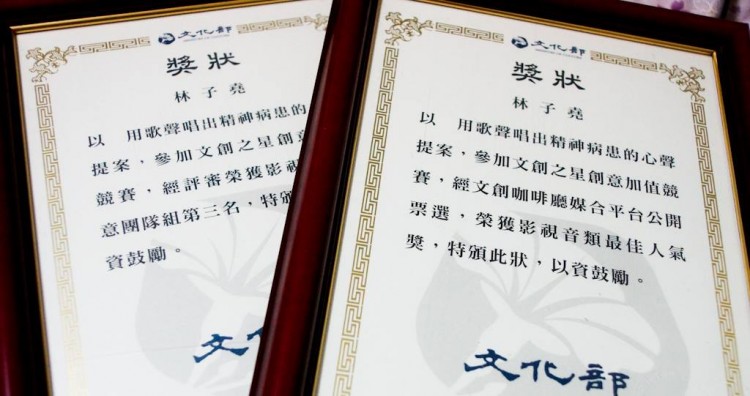 文化部
獎狀
林子堯
以 用歌聲唱出精神病患的
提案，參加文創之星創意
競賽，經評審榮獲影視
意團隊組第三名，特頒
資鼓勵。
文化
文化部
獎狀
林子堯
以 用歌聲唱出精神病患的心聲
提案，參加文創之星創意加值競
賽，經文創咖啡廳媒合平台公開
票選，榮獲影視音類最佳人氣
獎，特頒此狀，以資鼓勵。
文化部